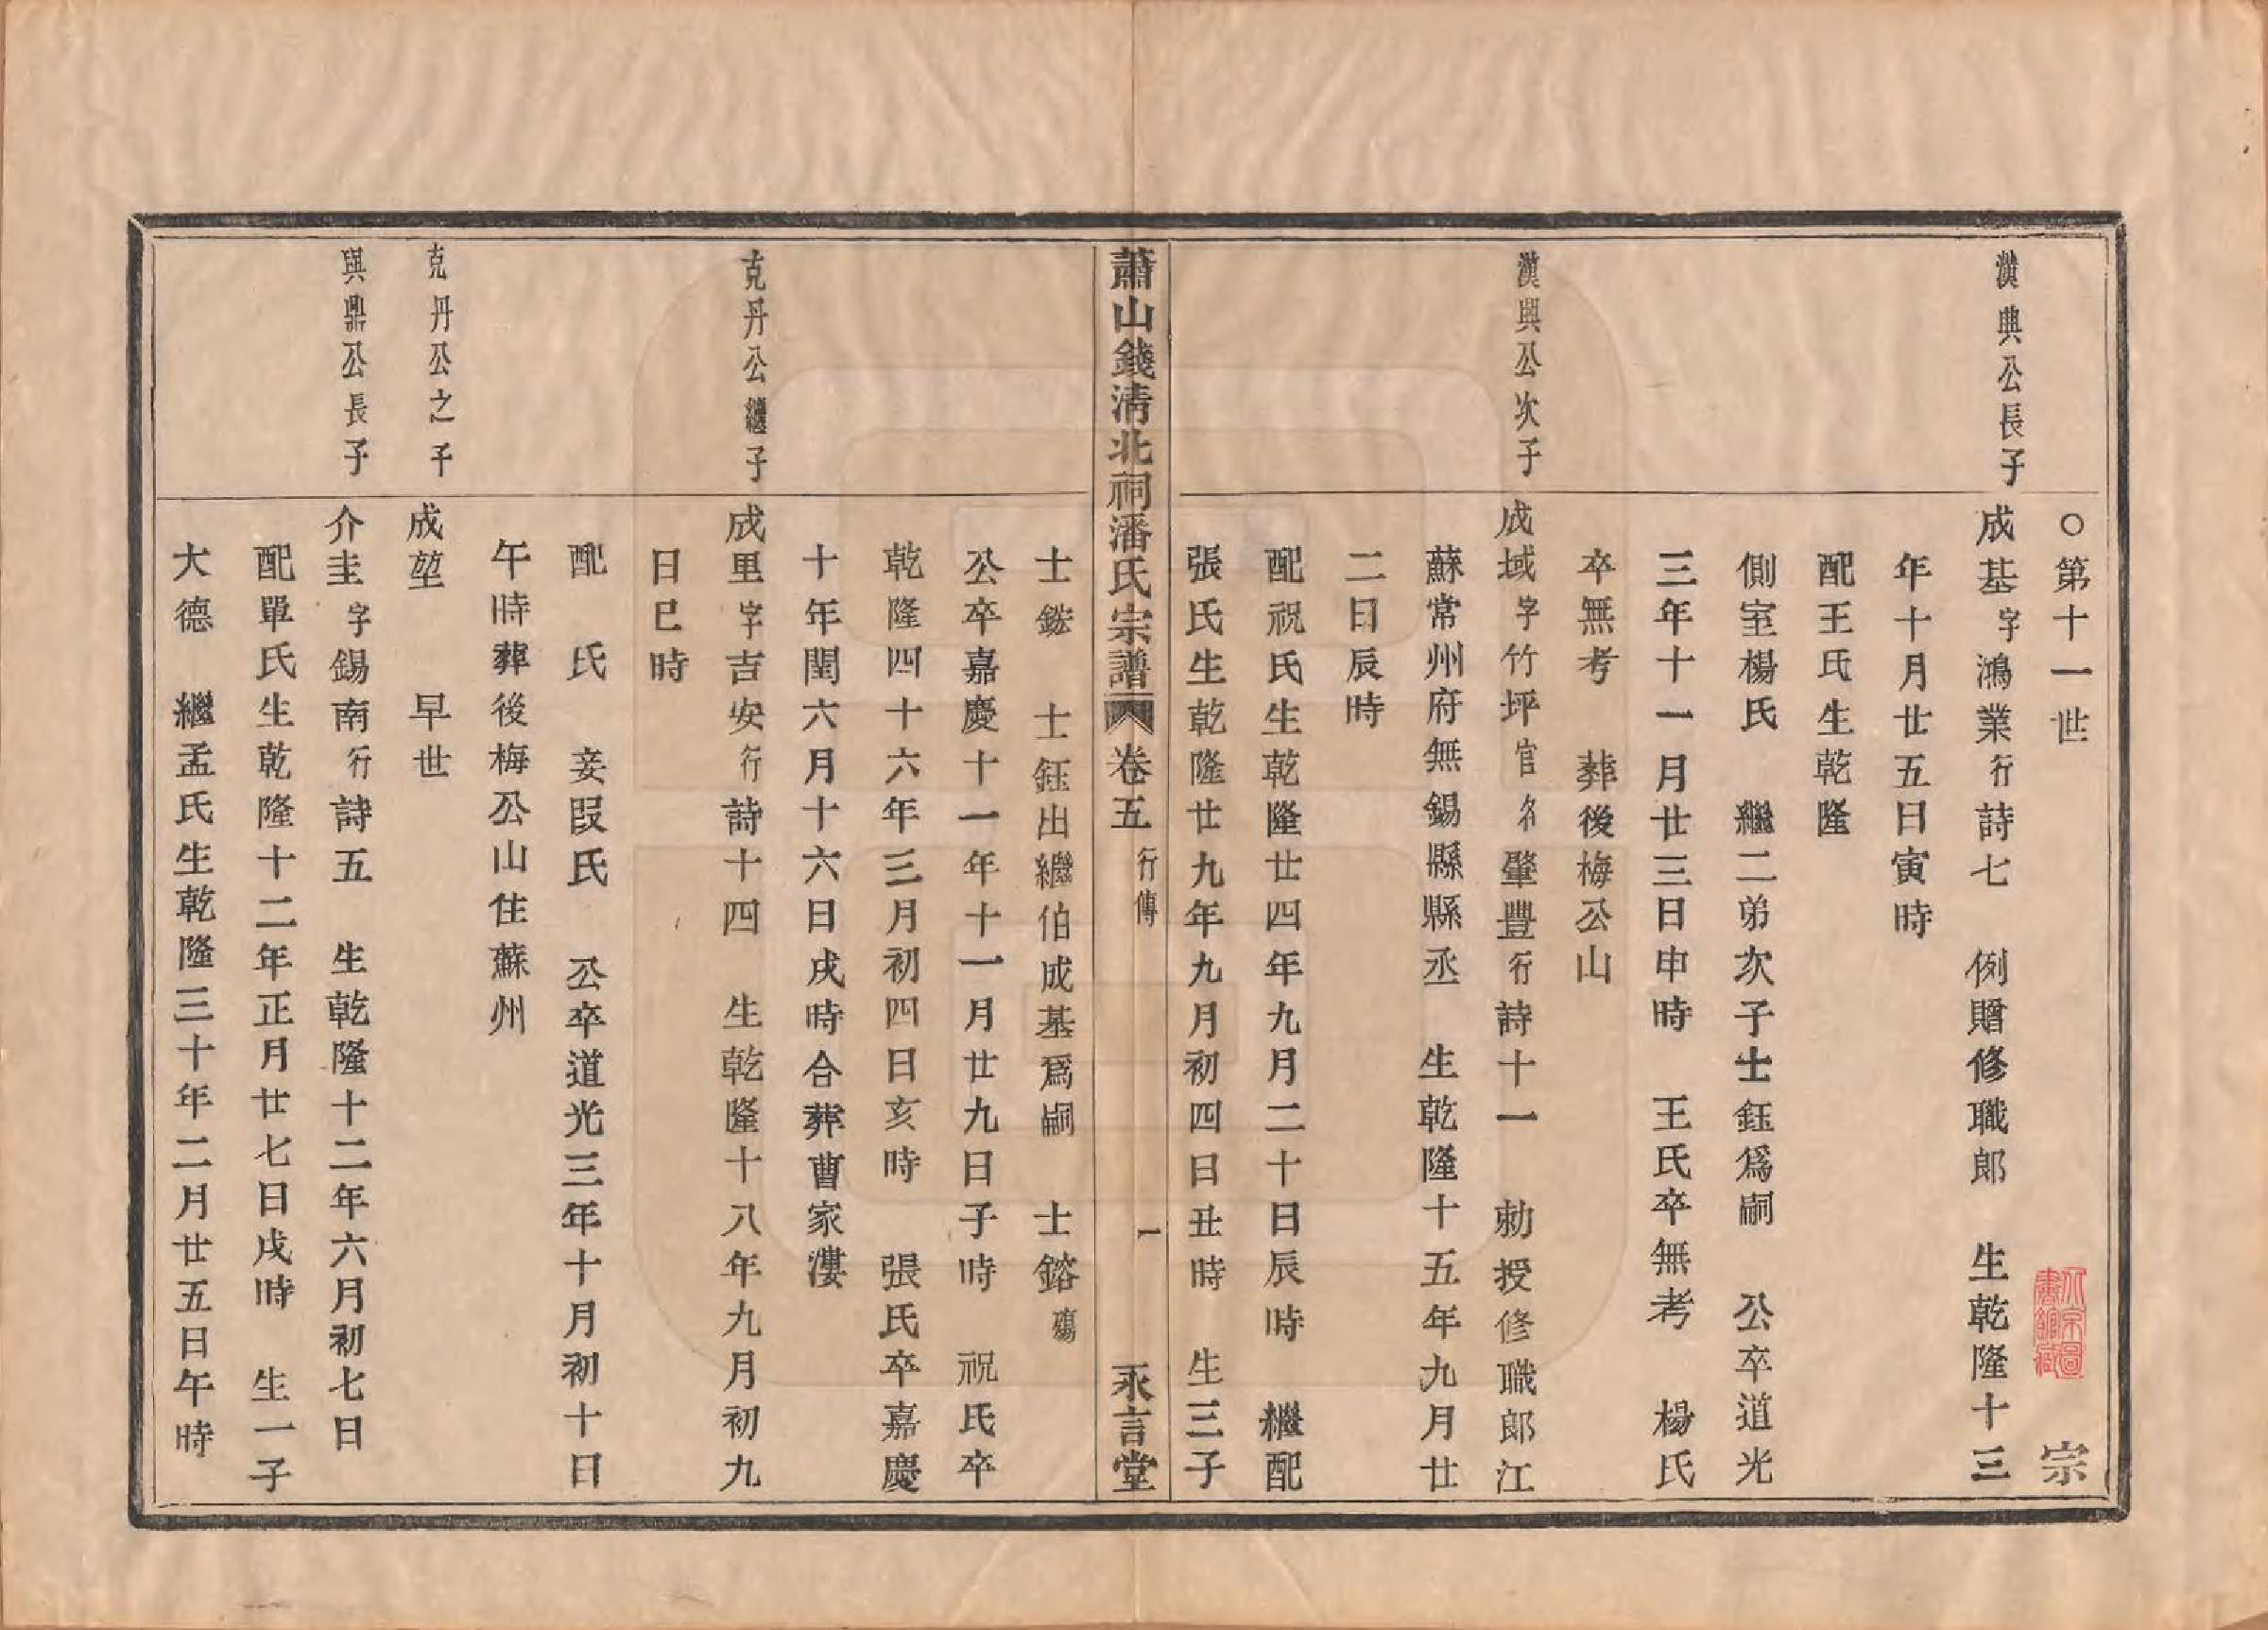 ○第十一世 宗
漢興公長子
成基字鴻業行詩七 例贈修職郎 生乾隆十三
年十月廿五日寅時
配王氏生乾隆
側室楊氏 繼二弟次子士鈺爲嗣 公卒道光
三年十一月廿三日申時 王氏卒無考 楊氏
卒無考 葬後梅公山
漢興公次子
成域字竹坪官名肇豐行詩十一 勅授修職郎江
蘇常州府無錫縣縣丞 生乾隆十五年九月廿
二日辰時
配祝氏生乾隆廿四年九月二十日辰時 繼配
張氏生乾隆廿九年九月初四日丑時 生三子
蕭山錢清北祠潘氏宗譜 卷五 行傳 一 永言堂
士 士鈺出繼伯成基爲嗣 士鎔殤
公卒嘉慶十一年十一月廿九日子時 祝氏卒
乾隆四十六年三月初四日亥時 張氏卒嘉慶
十年閏六月十六日戌時合葬曹家漊
克丹公繼子
成里字吉安行詩十四 生乾隆十八年九月初九
日巳時
配 氏 妾段氏 公卒道光三年十月初十日
午時葬後梅公山住蘇州
克丹公之子
成堃 早世
與鼎公長子
介圭字錫南行詩五 生乾隆十二年六月初七日
配單氏生乾隆十二年正月廿七日戌時 生一子
大德 繼孟氏生乾隆三十年二月廿五日午時